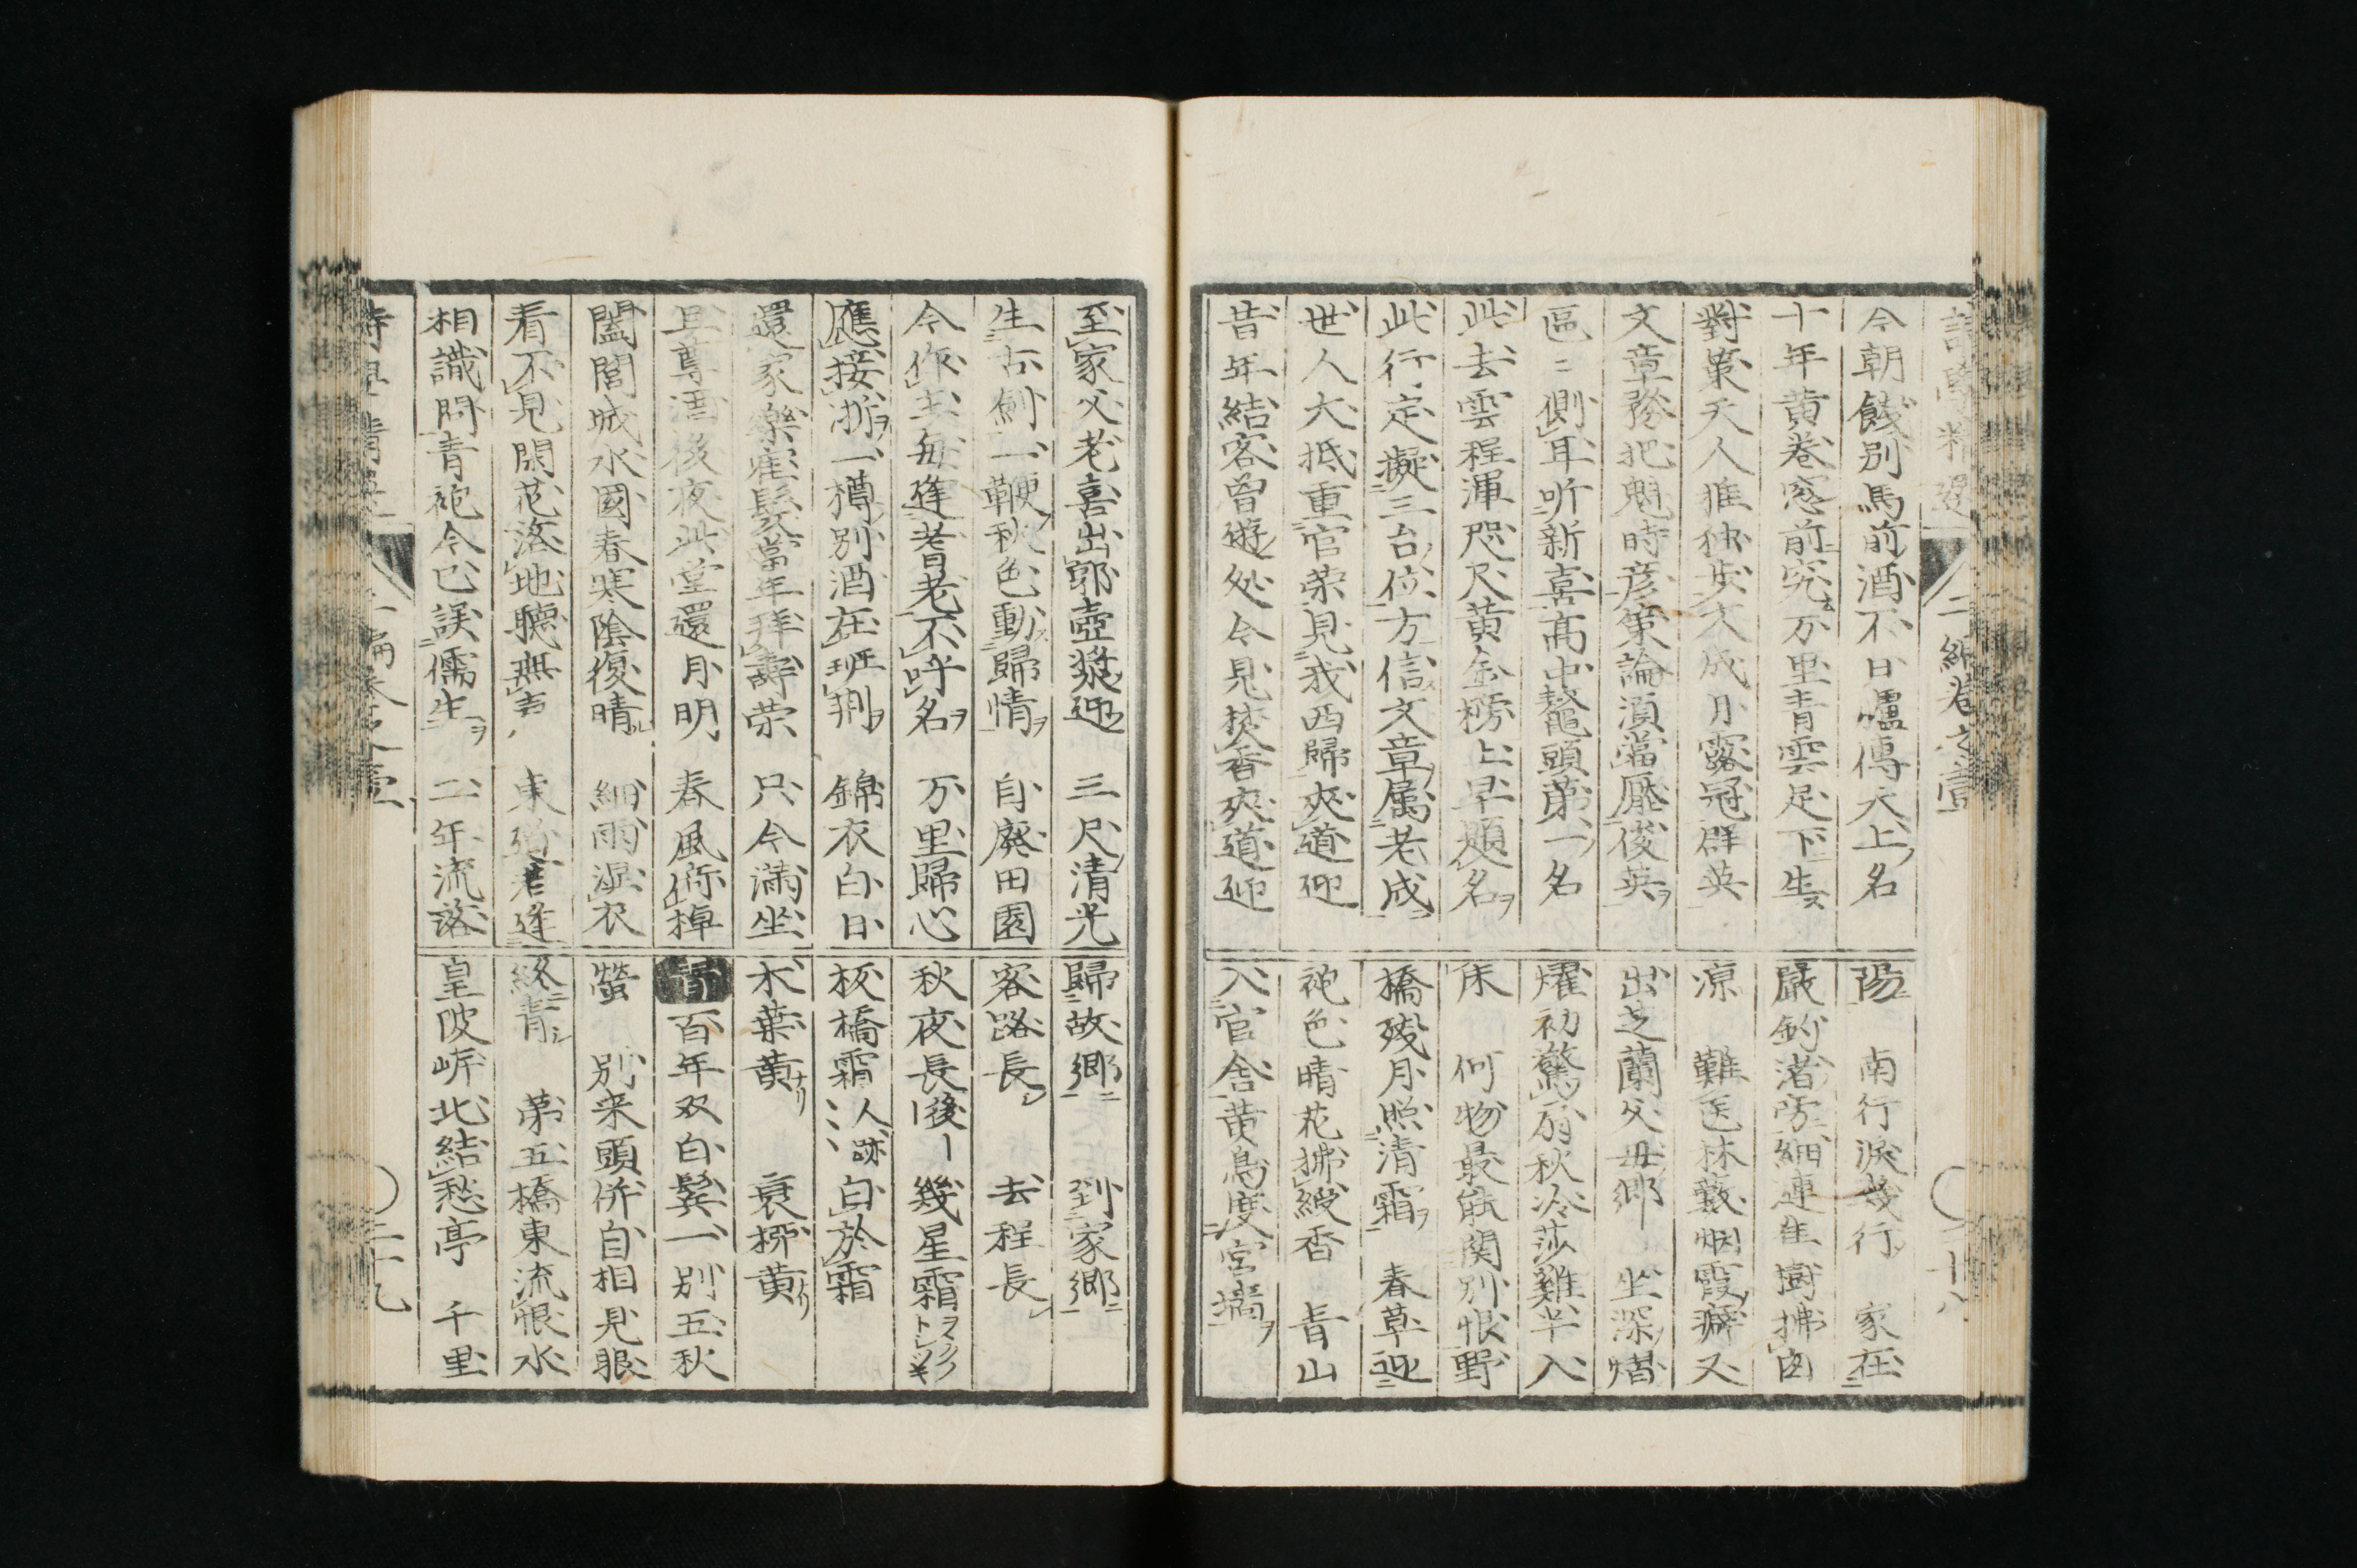 二編卷之壹
今朝餞別馬前酒不日臚傳天上名
十年黄巻窓前究万里青雲足下生ス
對策天人推独步大成月露冠群英
文章務把魁時彦策論須當壓俊英ヲ
區〻側耳听新喜高中鼇頭苐一名
此去雲程渾咫尺黄金榜上早題名ヲ
此行定擬三台位方信文章属老成
世人大抵重官荣見我西歸夾道迎
昔年結客曾遊処今見焚香夾道迎
陽 南行淚幾行 家在
嚴釣渚旁細連生樹拂囱
凉 難医林藪烟霞癖又
出芝蘭父母郷 坐深熠
燿初驚扇秋冷莎雞半入
床 何物最能関別恨野
橋残月照清霜ヲ 春草迎
袍色晴花拂綬香 青山
入官舎黄鳥度宮墻ヲ
至家父老喜出郭壺漿迎 三尺清光
生古劍一鞭秋色動歸情ヲ 自廢田園
今作主毎逢耆老不呼名ヲ 万里歸心
應接浙一樽別酒在班荆ヲ 錦衣白日
還家樂寉髮當年拜壽荣 只今満坐
且尊酒後夜此堂還月明 春風衍棹
闔閭城水國春寒陰復晴 細雨濕衣
看不見閑花落地聽無声 東道若逢
相識問青袍今已誤儒生ヲ 二年流落
歸故郷 到家郷
客路長 去程長
秋夜長後ー幾星霜
板橋霜人跡白於霜
木葉黄ナリ 衰栁黄ナリ
青 百年双白鬓一別五秋
螢 別来頭併白相見眼
終青 苐五橋東流恨水
皇陂岍北結愁亭 千里
詩學精選 二編卷之壹 二十九